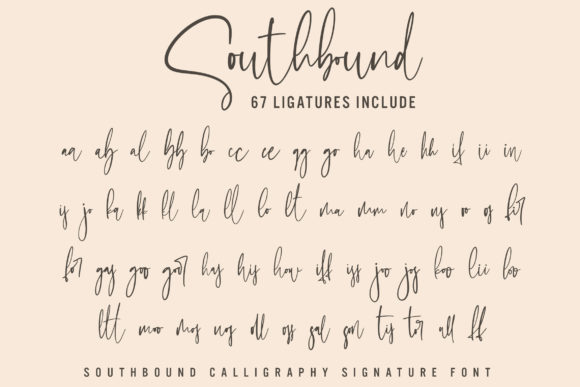 Southbound
67 LIGATURES INCLUDE
aa ab al bb bo cc ee gg go ha he hh if ii in
is jo ka kk kl la ll lo lt ma mm no ns oo os fir
for gas goo gor has his how iff iss joo jos koo lii loo
ltt moo mos nos oll oss sal son tis tor all ff
SOUTHBOUND CALLIGRAPHY SIGNATURE FONT